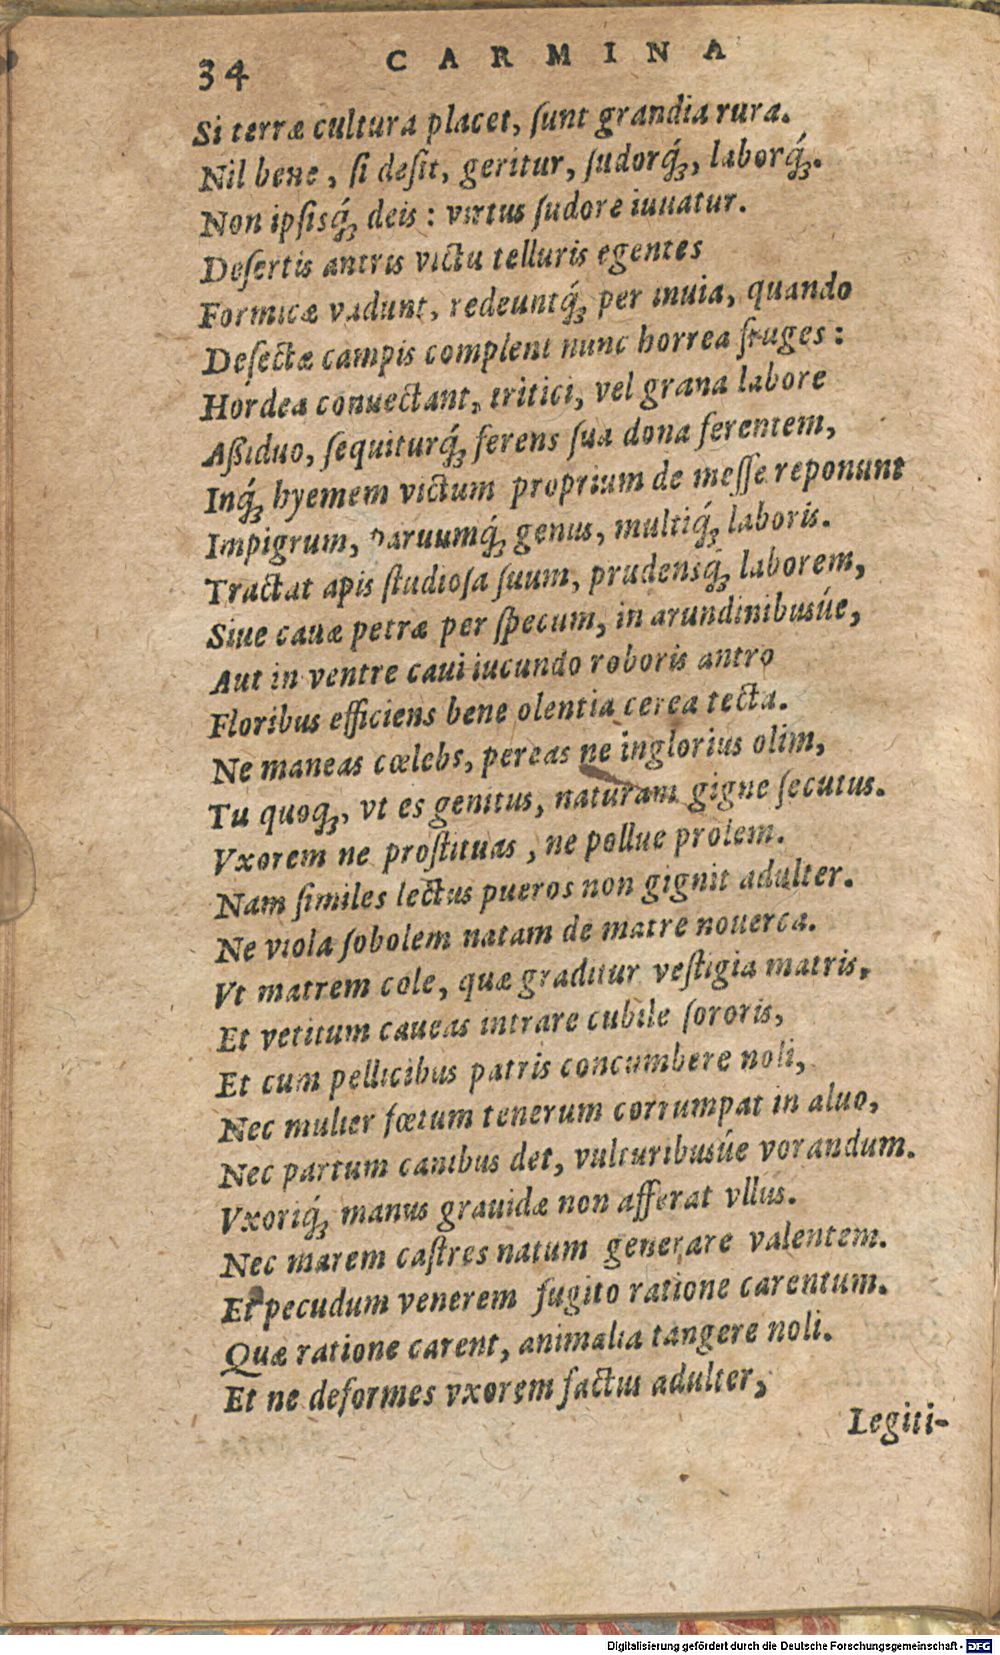 34 CARMINA
Si terræ cultura placet, ſunt grandia rura.
Nil bene, ſi deſit, geritur, ſudorq́ꝫ, laborq́ꝫ.
Non ipſisq́ꝫ deis: virtus ſudore iuuatur.
Deſertis antris victu telluris egentes
Formicæ vadunt, redeuntq́ꝫ per inuia, quando
Deſectæ campis complent nunc horrea fruges:
Hordea conuectant, tritici, vel grana labore
Aßiduo, ſequiturq́ꝫ ferens ſua dona ferentem,
Inq́ꝫ hyemem victum proprium de meſſe reponunt
Impigrum, paruumq́ꝫ genus, multiq́ꝫ laboris.
Tractat apis ſtudioſa ſuum, prudensq́ꝫ laborem,
Siue cauæ petræ per ſpecum, in arundinibusúe,
Aut in ventre caui iucundo roboris antro
Floribus efficiens bene olentia cerea tecta.
Ne maneas cœlebs, pereas ne inglorius olim,
Tu quoqꝫ, vt es genitus, naturam gigne ſecutus.
Vxorem ne proſtituas, ne pollue prolem.
Nam ſimiles lectus pueros non gignit adulter.
Ne viola ſobolem natam de matre nouerca.
Vt matrem cole, quæ graditur veſtigia matris,
Et vetitum caueas intrare cubile ſororis,
Et cum pellicibus patris concumbere noli,
Nec mulier fœtum tenerum corrumpat in aluo,
Nec partum canibus det, vulturibusúe vorandum.
Vxoriq́ꝫ manus grauidæ non afferat vllus.
Nec marem caſtres natum generare valentem.
Et pecudum venerem fugito ratione carentum.
Quæ ratione carent, animalia tangere noli.
Et ne deformes vxorem factus adulter,
Legiti-
Digitalisierung gefördert durch die Deutsche Forschungsgemeinschaft - DFG